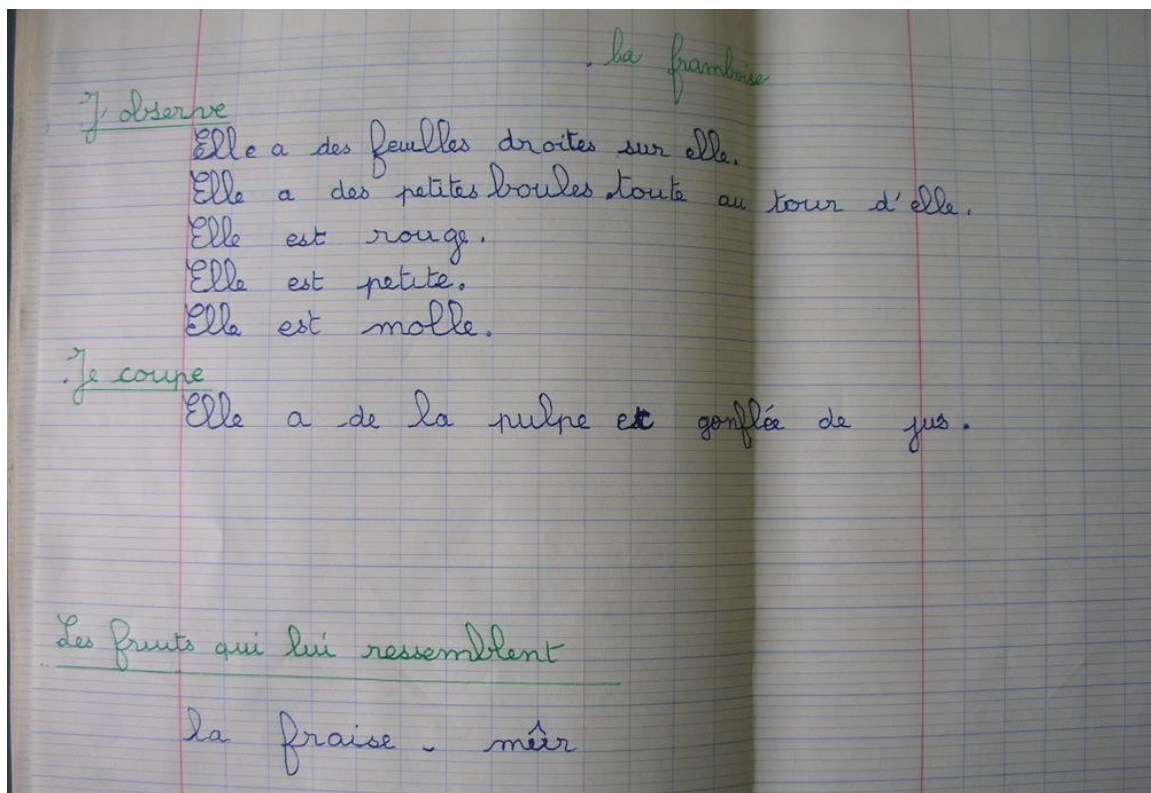 la framboise
J'observe
Elle a des feuilles droites sur elle.
Elle a des petites boules toute au tour d'elle.
Elle est rouge.
Elle est petite.
Elle est molle.
Je coupe
Elle a de la pulpe et gonflée de jus.
Les fruits qui lui ressemblent
la fraise - mûr